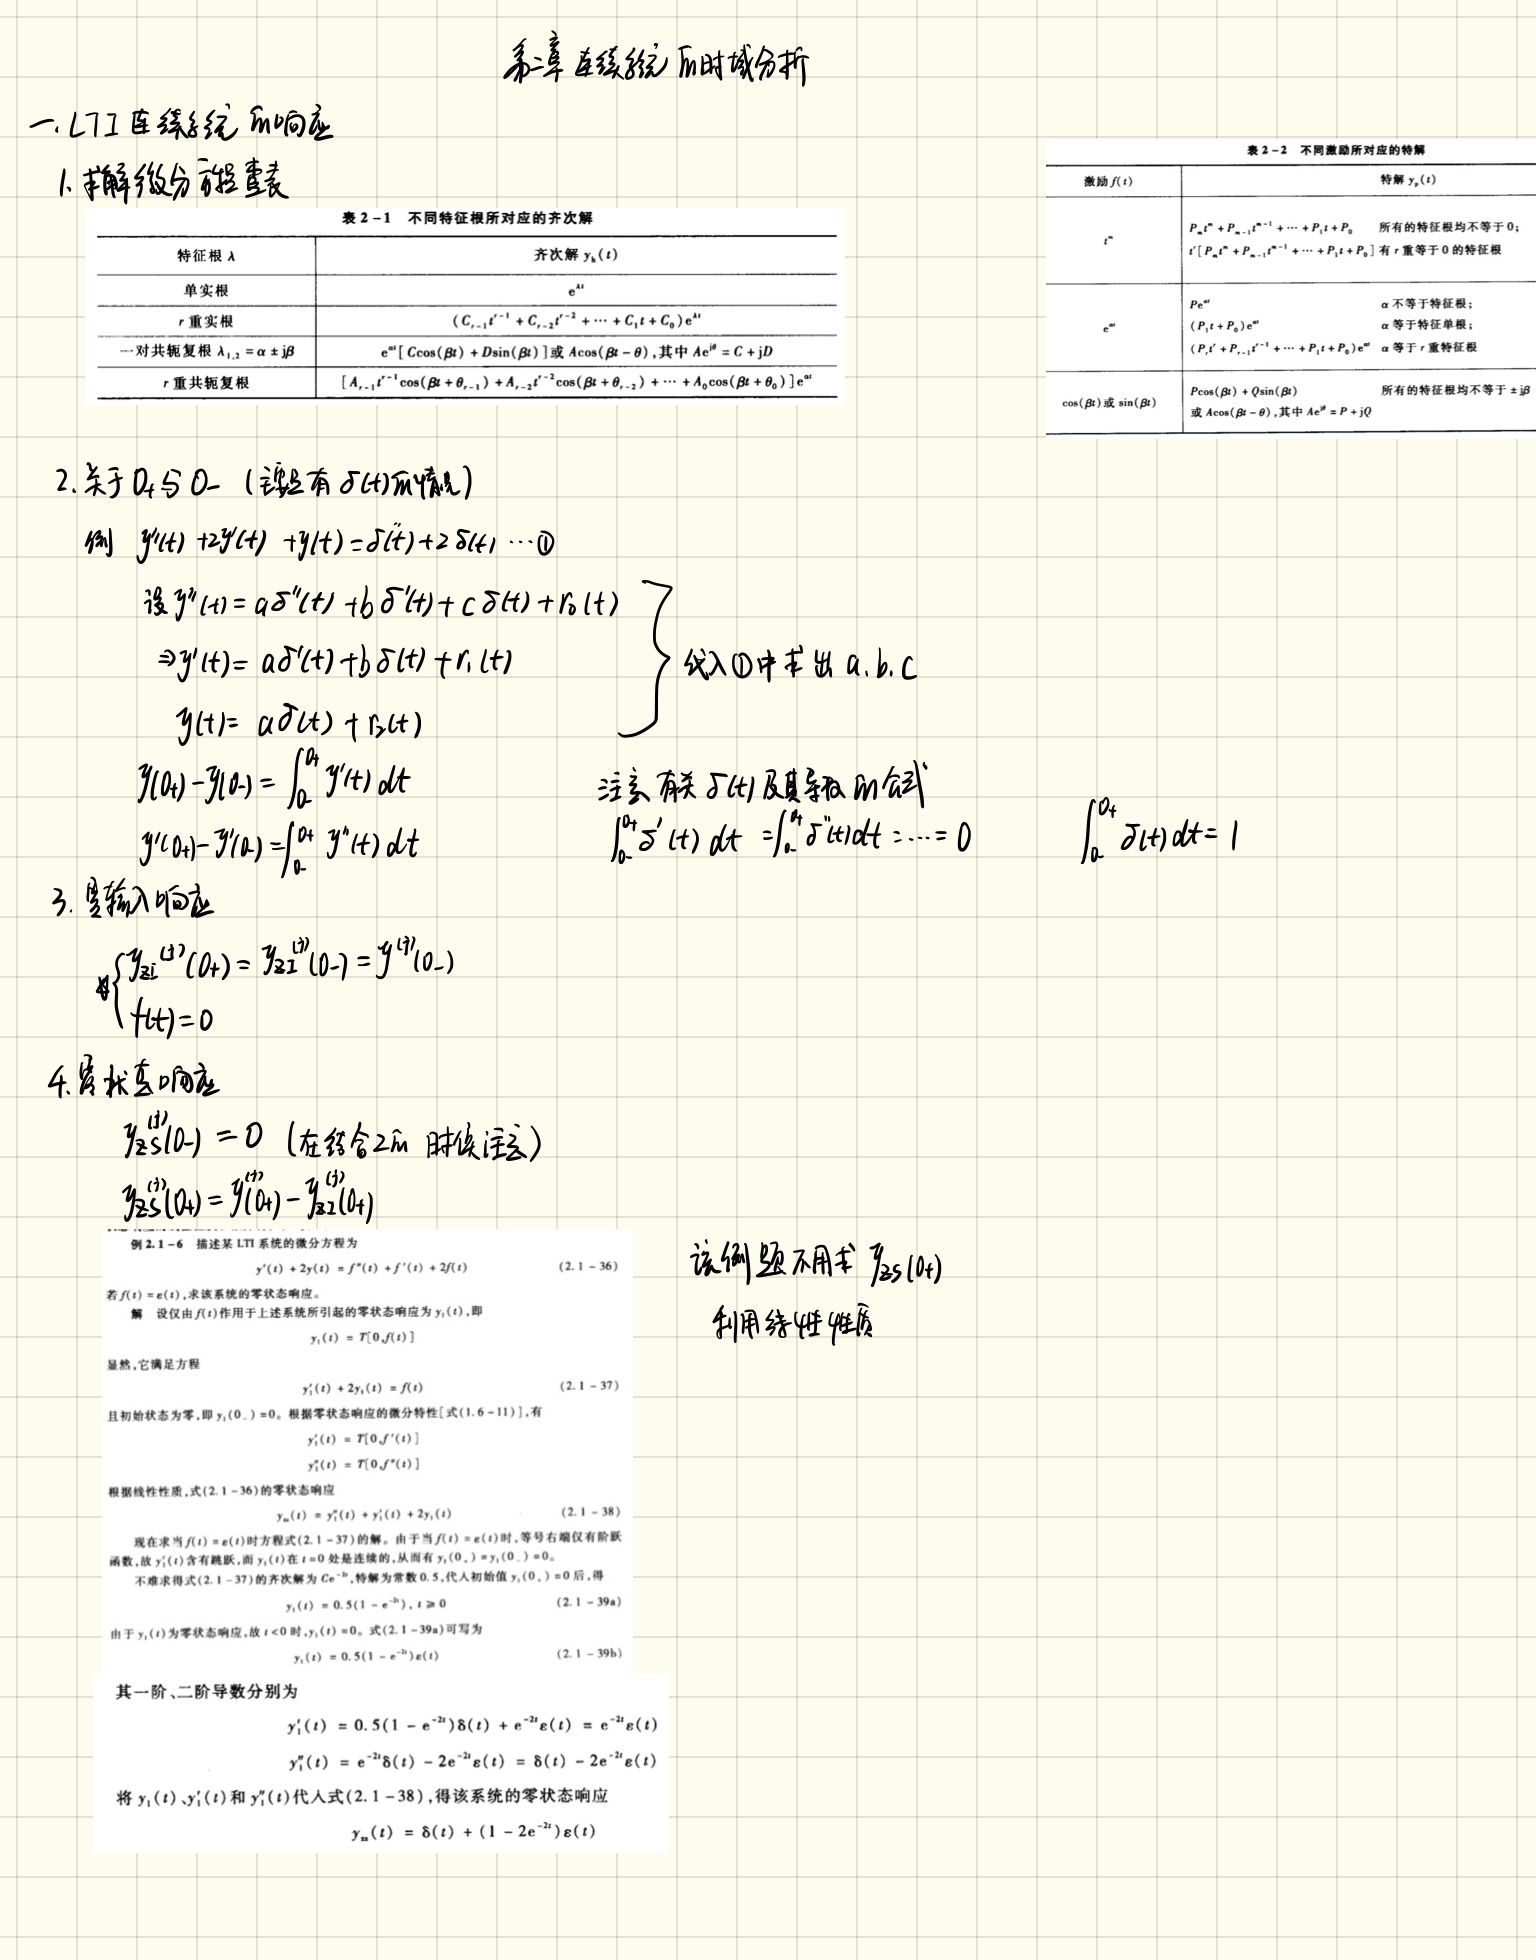 第二章 连续系统的时域分析
一. LTI 连续系统的响应
1. 求解微分方程查表
表 2-1 不同特征根所对应的齐次解
特征根 λ 齐次解 y_h(t)
单实根 e^{λt}
r 重实根 (C_{r-1}t^{r-1} + C_{r-2}t^{r-2} + ⋯ + C_1t + C_0)e^{λt}
一对共轭复根 λ_{1,2} = α ± jβ e^{αt}[Ccos(βt) + Dsin(βt)]或 Acos(βt - θ),其中 Ae^{jθ} = C + jD
r 重共轭复根 [A_{r-1}t^{r-1}cos(βt + θ_{r-1}) + A_{r-2}t^{r-2}cos(βt + θ_{r-2}) + ⋯ + A_0cos(βt + θ_0)]e^{αt}
表 2-2 不同激励所对应的特解
激励 f(t) 特解 y_p(t)
t^m P_mt^m + P_{m-1}t^{m-1} + ⋯ + P_1t + P_0 所有的特征根均不等于 0;
t^r[P_mt^m + P_{m-1}t^{m-1} + ⋯ + P_1t + P_0] 有 r 重等于 0 的特征根
e^{αt} Pe^{αt} α 不等于特征根;
(P_1t + P_0)e^{αt} α 等于特征单根;
(P_rt^r + P_{r-1}t^{r-1} + ⋯ + P_1t + P_0)e^{αt} α 等于 r 重特征根
cos(βt)或 sin(βt) Pcos(βt) + Qsin(βt) 所有的特征根均不等于 ± jβ
或 Acos(βt - θ),其中 Ae^{jθ} = P + jQ
2. 关于 0+与 0- (主要是有 δ(t)的情况)
例 y''(t) + 2y'(t) + y(t) = δ''(t) + 2δ(t) ⋯①
设 y''(t) = aδ''(t) + bδ'(t) + cδ(t) + r_0(t)
⇒ y'(t) = aδ'(t) + bδ(t) + r_1(t)
代入①中求出 a.b.c
y(t) = aδ(t) + r_2(t)
y(0+) - y(0-) = ∫_{0-}^{0+} y'(t) dt
注意有关 δ(t)及其导数的公式
y'(0+) - y'(0-) = ∫_{0-}^{0+} y''(t) dt
∫_{0-}^{0+} δ'(t) dt = ∫_{0-}^{0+} δ''(t) dt = ⋯ = 0
∫_{0-}^{0+} δ(t) dt = 1
3. 零输入响应
y_{ZI}^{(j)}(0+) = y_{ZI}^{(j)}(0-) = y^{(j)}(0-)
f(t) = 0
4. 零状态响应
y_{ZS}^{(j)}(0-) = 0 (在结合2的时候注意)
y_{ZS}^{(j)}(0+) = y^{(j)}(0+) - y_{ZI}^{(j)}(0+)
例 2.1-6 描述某 LTI 系统的微分方程为
y'(t) + 2y(t) = f''(t) + f'(t) + 2f(t) (2.1-36)
该例题不用求 y_{ZS}(0+)
利用线性性质
若 f(t) = ε(t),求该系统的零状态响应。
解 设仅由 f(t)作用于上述系统所引起的零状态响应为 y_1(t),即
y_1(t) = T[0,f(t)]
显然,它满足方程
y_1'(t) + 2y_1(t) = f(t) (2.1-37)
且初始状态为零,即 y_1(0_-) = 0。根据零状态响应的微分特性[式(1.6-11)],有
y_1'(t) = T[0,f'(t)]
y_1''(t) = T[0,f''(t)]
根据线性性质,式(2.1-36)的零状态响应
y_{zs}(t) = y_1''(t) + y_1'(t) + 2y_1(t) (2.1-38)
现在求当 f(t) = ε(t)时方程式(2.1-37)的解。由于当 f(t) = ε(t)时,等号右端仅有阶跃
函数,故 y_1'(t)含有跳跃,而 y_1(t)在 t = 0 处是连续的,从而有 y_1(0_+) = y_1(0_-) = 0。
不难求得式(2.1-37)的齐次解为 Ce^{-2t},特解为常数 0.5,代入初始值 y_1(0_+) = 0 后,得
y_1(t) = 0.5(1 - e^{-2t}), t ≥ 0 (2.1-39a)
由于 y_1(t)为零状态响应,故 t < 0 时,y_1(t) = 0。式(2.1-39a)可写为
y_1(t) = 0.5(1 - e^{-2t})ε(t) (2.1-39b)
其一阶、二阶导数分别为
y_1'(t) = 0.5(1 - e^{-2t})δ(t) + e^{-2t}ε(t) = e^{-2t}ε(t)
y_1''(t) = e^{-2t}δ(t) - 2e^{-2t}ε(t) = δ(t) - 2e^{-2t}ε(t)
将 y_1(t)、y_1'(t)和 y_1''(t)代入式(2.1-38),得该系统的零状态响应
y_{zs}(t) = δ(t) + (1 - 2e^{-2t})ε(t)